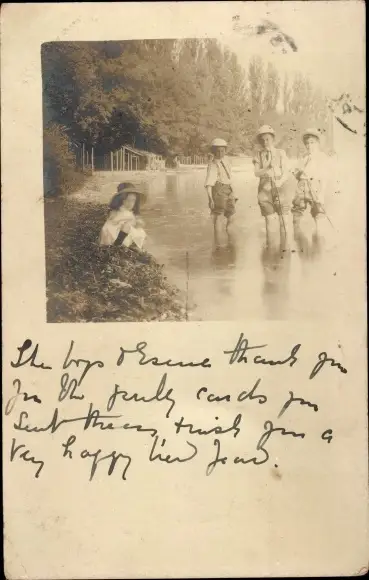 The boys & Esme thank you
for the pretty cards you
sent them, & wish you a
very happy New Year.